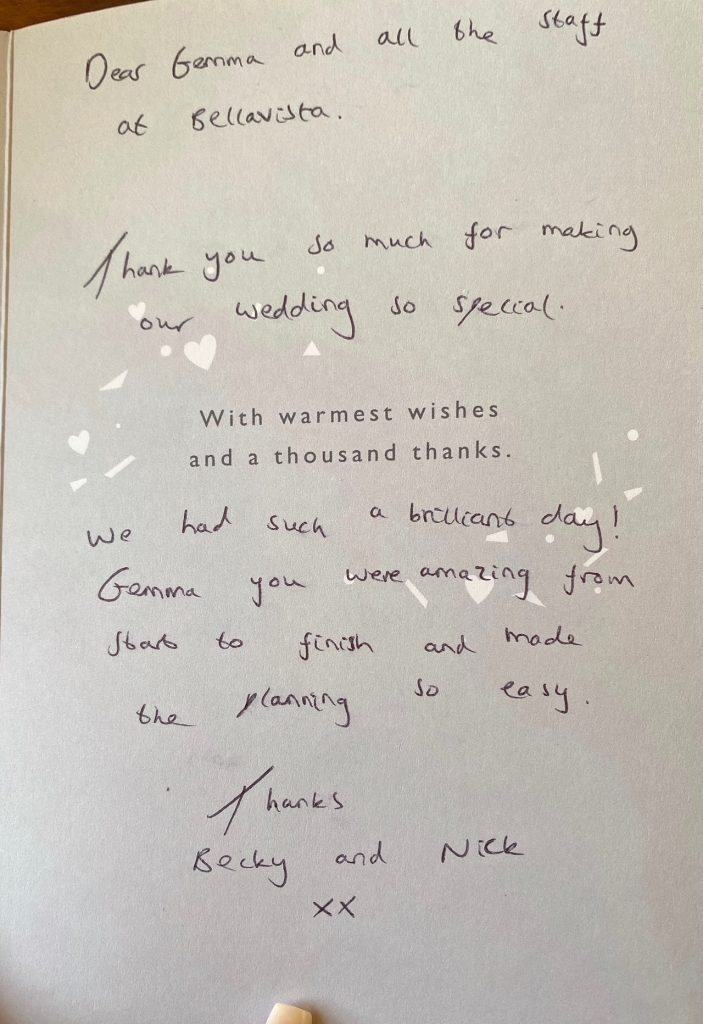 Dear Gemma and all the staff
at Bellavista.
Thank you so much for making
our wedding so special.
With warmest wishes
and a thousand thanks.
We had such a brilliant day!
Gemma you were amazing from
start to finish and made
the planning so easy.
Thanks
Becky and Nick
xx